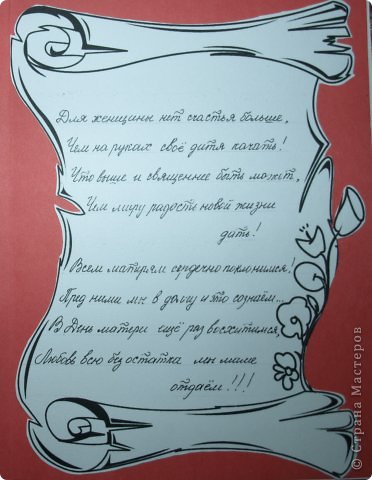 Для женщины нет счастья больше,
Чем на руках своё дитя качать!
Что выше и священнее быть может,
Чем миру радость новой жизни
дать!
Всем матирям сердечно поклонимся!
Пред ними мы в долгу и это сознаём...
В День матери ещё раз восхитимся,
Любовь всю без остатка мы маме
отдаём!!!
© Страна Мастеров